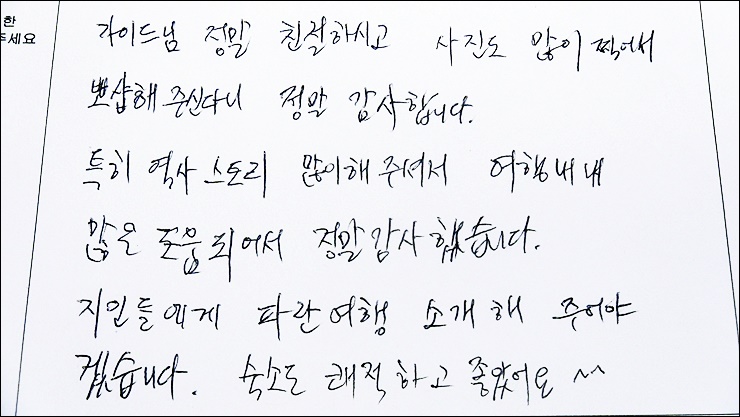 한
주세요
가이드님 정말 친절하시고 사진도 많이 찍어서
뽀샵해 주신다니 정말 감사합니다.
특히 역사 스토리 많이해 주셔서 여행내내
많은 도움 되어서 정말감사했습니다.
지인들에게 파란여행 소개해 주어야
겠습니다. 숙소도 쾌적하고 좋았어요 ~